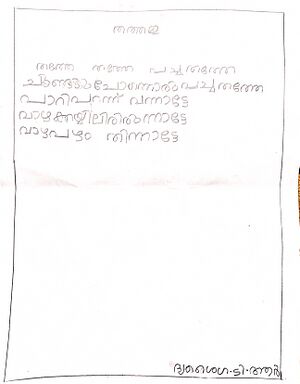 തത്തമ്മ
തത്തേ തത്തേ പച്ചതത്തേ
ചുണ്ടുചോന്നൊരുപച്ചതത്തേ
പാറിപറന്ന് വന്നാട്ടേ
വാഴക്കയ്യിലിരുന്നാട്ടേ
വാഴപഴം തിന്നാട്ടേ